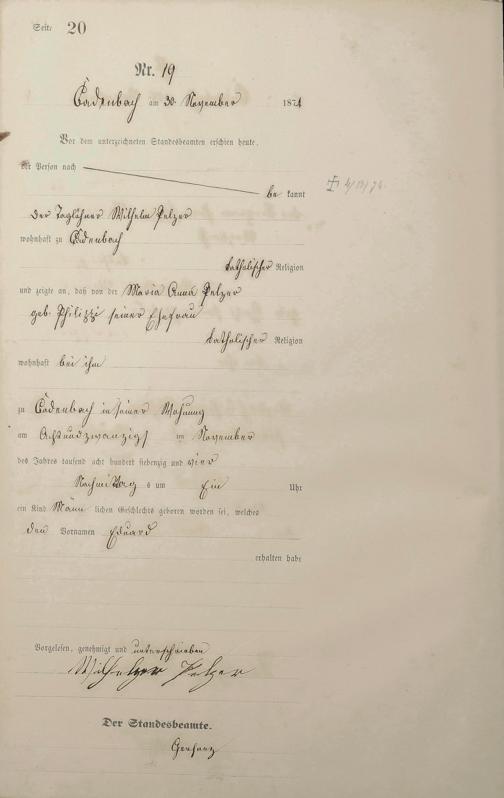 Seite 20
Nr. 19
Cadenbach am 30 November 1874
Vor dem unterzeichneten Standesbeamten erschien heute,
der Person nach
be kannt
✝ 4/12/74
der Taglöhner Wilhelm Pelzer
wohnhaft zu Cadenbach
katholischer Religion
und zeigte an, daß von der Maria Anna Pelzer
geb. Philippi seiner Ehefrau
katholischer Religion
wohnhaft bei ihm
zu Cadenbach in seiner Wohnung
am Achtundzwanzigst im November
des Jahres tausend acht hundert siebenzig und vier
Nachmittag s um Ein Uhr
ein Kind Männ lichen Geschlechts geboren worden sei, welches
den Vornamen Eduard
erhalten habe
Vorgelesen, genehmigt und unterschrieben
Pelzer
Der Standesbeamte.